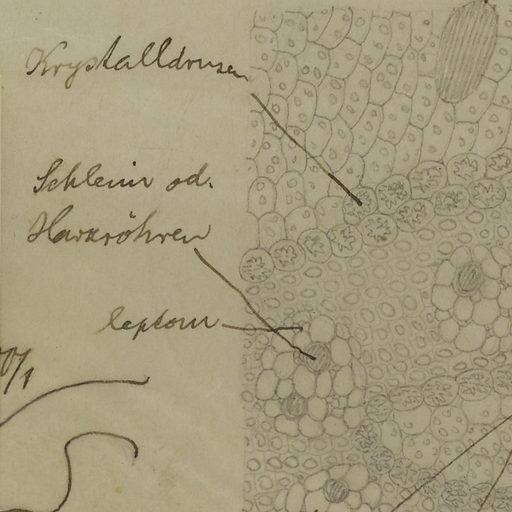 Krystalldrusen
Schleim od.
Harzröhren
leptom
0/1